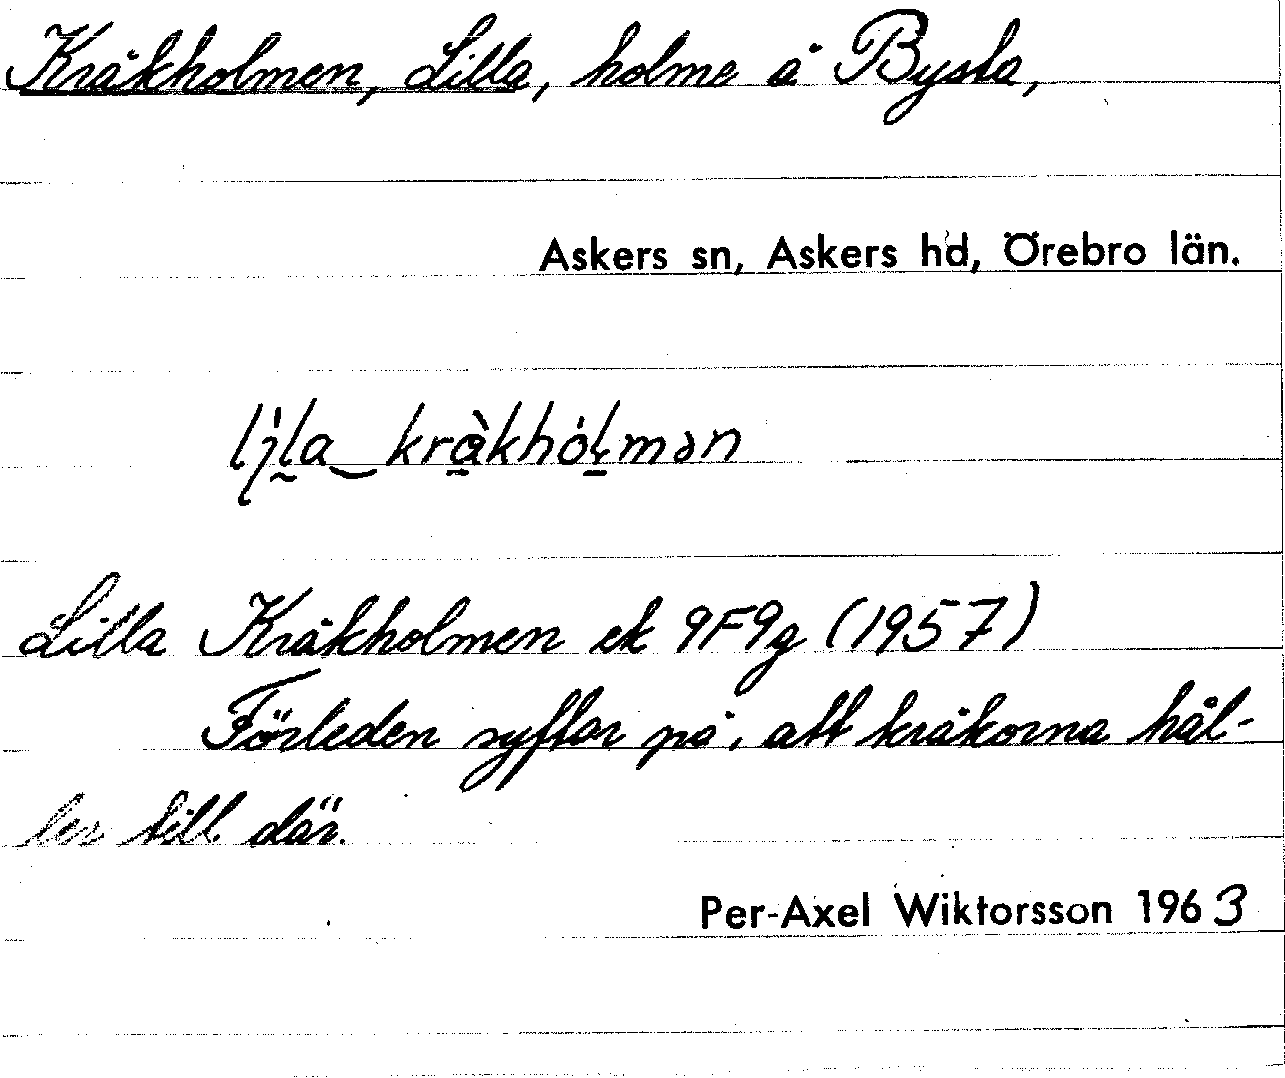 Kråkholmen, Lilla, holme å Bysta,
Askers sn, Askers hd, Örebro län.
Lilla Kråkholmen ek 9F9g (1957)
Förleden syftar på, att kråkorna hål-
ler till där.
Per-Axel Wiktorsson 1963